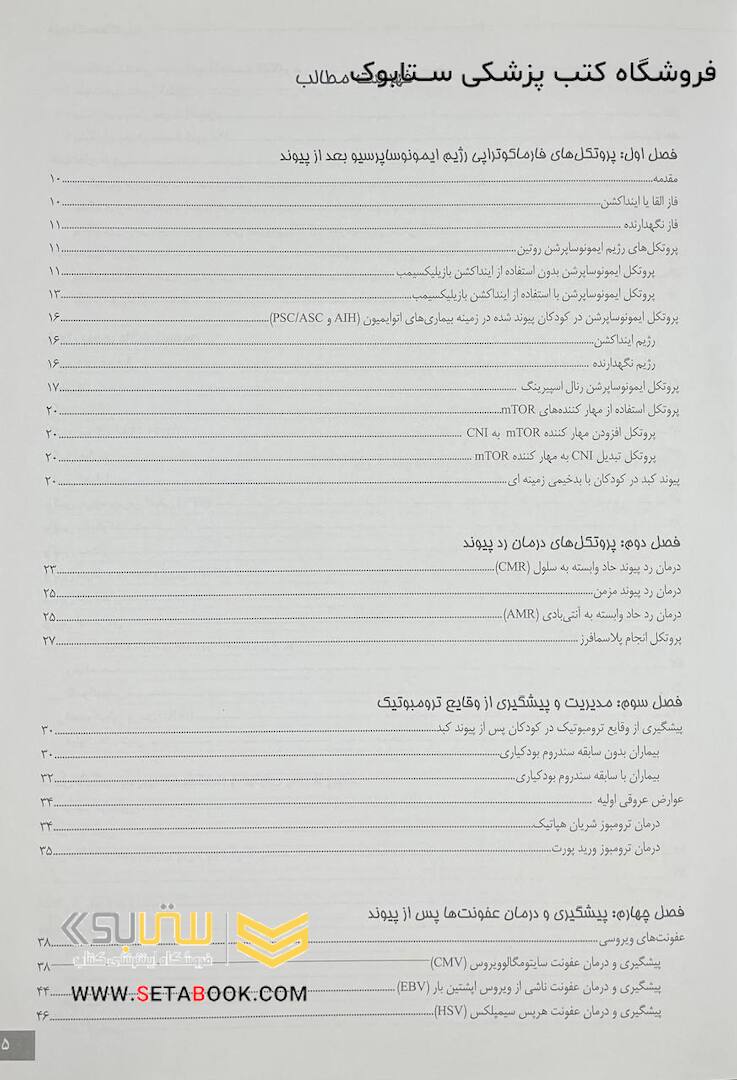 فروشگاه کتب پزشکی ستابوک
فهرست مطالب
فصل اول: پروتکل‌های فارماکوتراپی رژیم ایمونوساپرسیو بعد از پیوند
مقدمه ۱۰
فاز القا یا اینداکشن ۱۰
فاز نگهدارنده ۱۱
پروتکل‌های رژیم ایمونوساپرشن روتین ۱۱
پروتکل ایمونوساپرشن بدون استفاده از اینداکشن بازیلیکسیمب ۱۱
پروتکل ایمونوساپرشن با استفاده از اینداکشن بازیلیکسیمب ۱۳
پروتکل ایمونوساپرشن در کودکان پیوند شده در زمینه بیماری‌های اتوایمیون (AIH و PSC/ASC) ۱۶
رژیم اینداکشن ۱۶
رژیم نگهدارنده ۱۶
پروتکل ایمونوساپرشن رنال اسپیرینگ ۱۷
پروتکل استفاده از مهار کننده‌های mTOR ۲۰
پروتکل افزودن مهار کننده mTOR به CNI ۲۰
پروتکل تبدیل CNI به مهار کننده mTOR ۲۰
پیوند کبد در کودکان با بدخیمی زمینه ای ۲۰
فصل دوم: پروتکل‌های درمان رد پیوند
درمان رد پیوند حاد وابسته به سلول (CMR) ۲۳
درمان رد پیوند مزمن ۲۵
درمان رد حاد وابسته به آنتی‌بادی (AMR) ۲۵
پروتکل انجام پلاسمافرز ۲۷
فصل سوم: مدیریت و پیشگیری از وقایع ترومبوتیک
پیشگیری از وقایع ترومبوتیک در کودکان پس از پیوند کبد ۳۰
بیماران بدون سابقه سندروم بودکیاری ۳۰
بیماران با سابقه سندروم بودکیاری ۳۲
عوارض عروقی اولیه ۳۴
درمان ترومبوز شریان هپاتیک ۳۴
درمان ترومبوز ورید پورت ۳۵
فصل چهارم: پیشگیری و درمان عفونت‌ها پس از پیوند
عفونت‌های ویروسی ۳۸
پیشگیری و درمان عفونت سایتومگالوویروس (CMV) ۳۸
پیشگیری و درمان عفونت ناشی از ویروس اپشتین بار (EBV) ۴۴
پیشگیری و درمان عفونت هرپس سیمپلکس (HSV) ۴۶
ستابوک
فروشگاه اینترنتی کتاب
WWW.SETABOOK.COM
۵